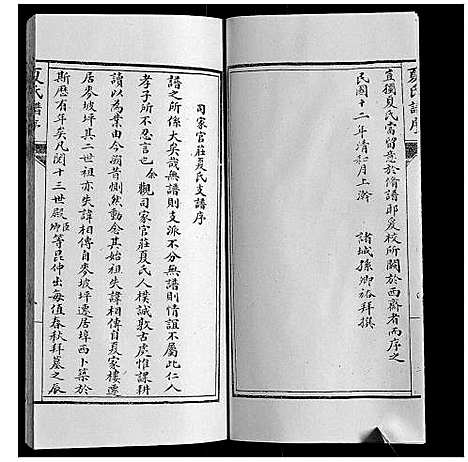 夏氏譜序
豈獨夏氏當留意於脩譜耶爰校所聞於西齋者而序之
民國十二年清和月上澣
諸城孫卿裕拜撰
司家官莊夏氏支譜序
譜之所係大矣哉無譜則支派不分無譜則情誼不屬此仁人
孝子所不忍言也余觀司家官莊夏氏人樸誠敦古處惟課耕
讀以為業由今溯昔惻然動念其始祖失諱相傳自夏家樓遷
居麥坡坪其二世祖亦失諱相傳自麥坡坪遷居埠西卜築於
斯歷有年矣凡閱十三世殿臣卿等昆仲出每值春秋拜墓之辰
夏氏譜序